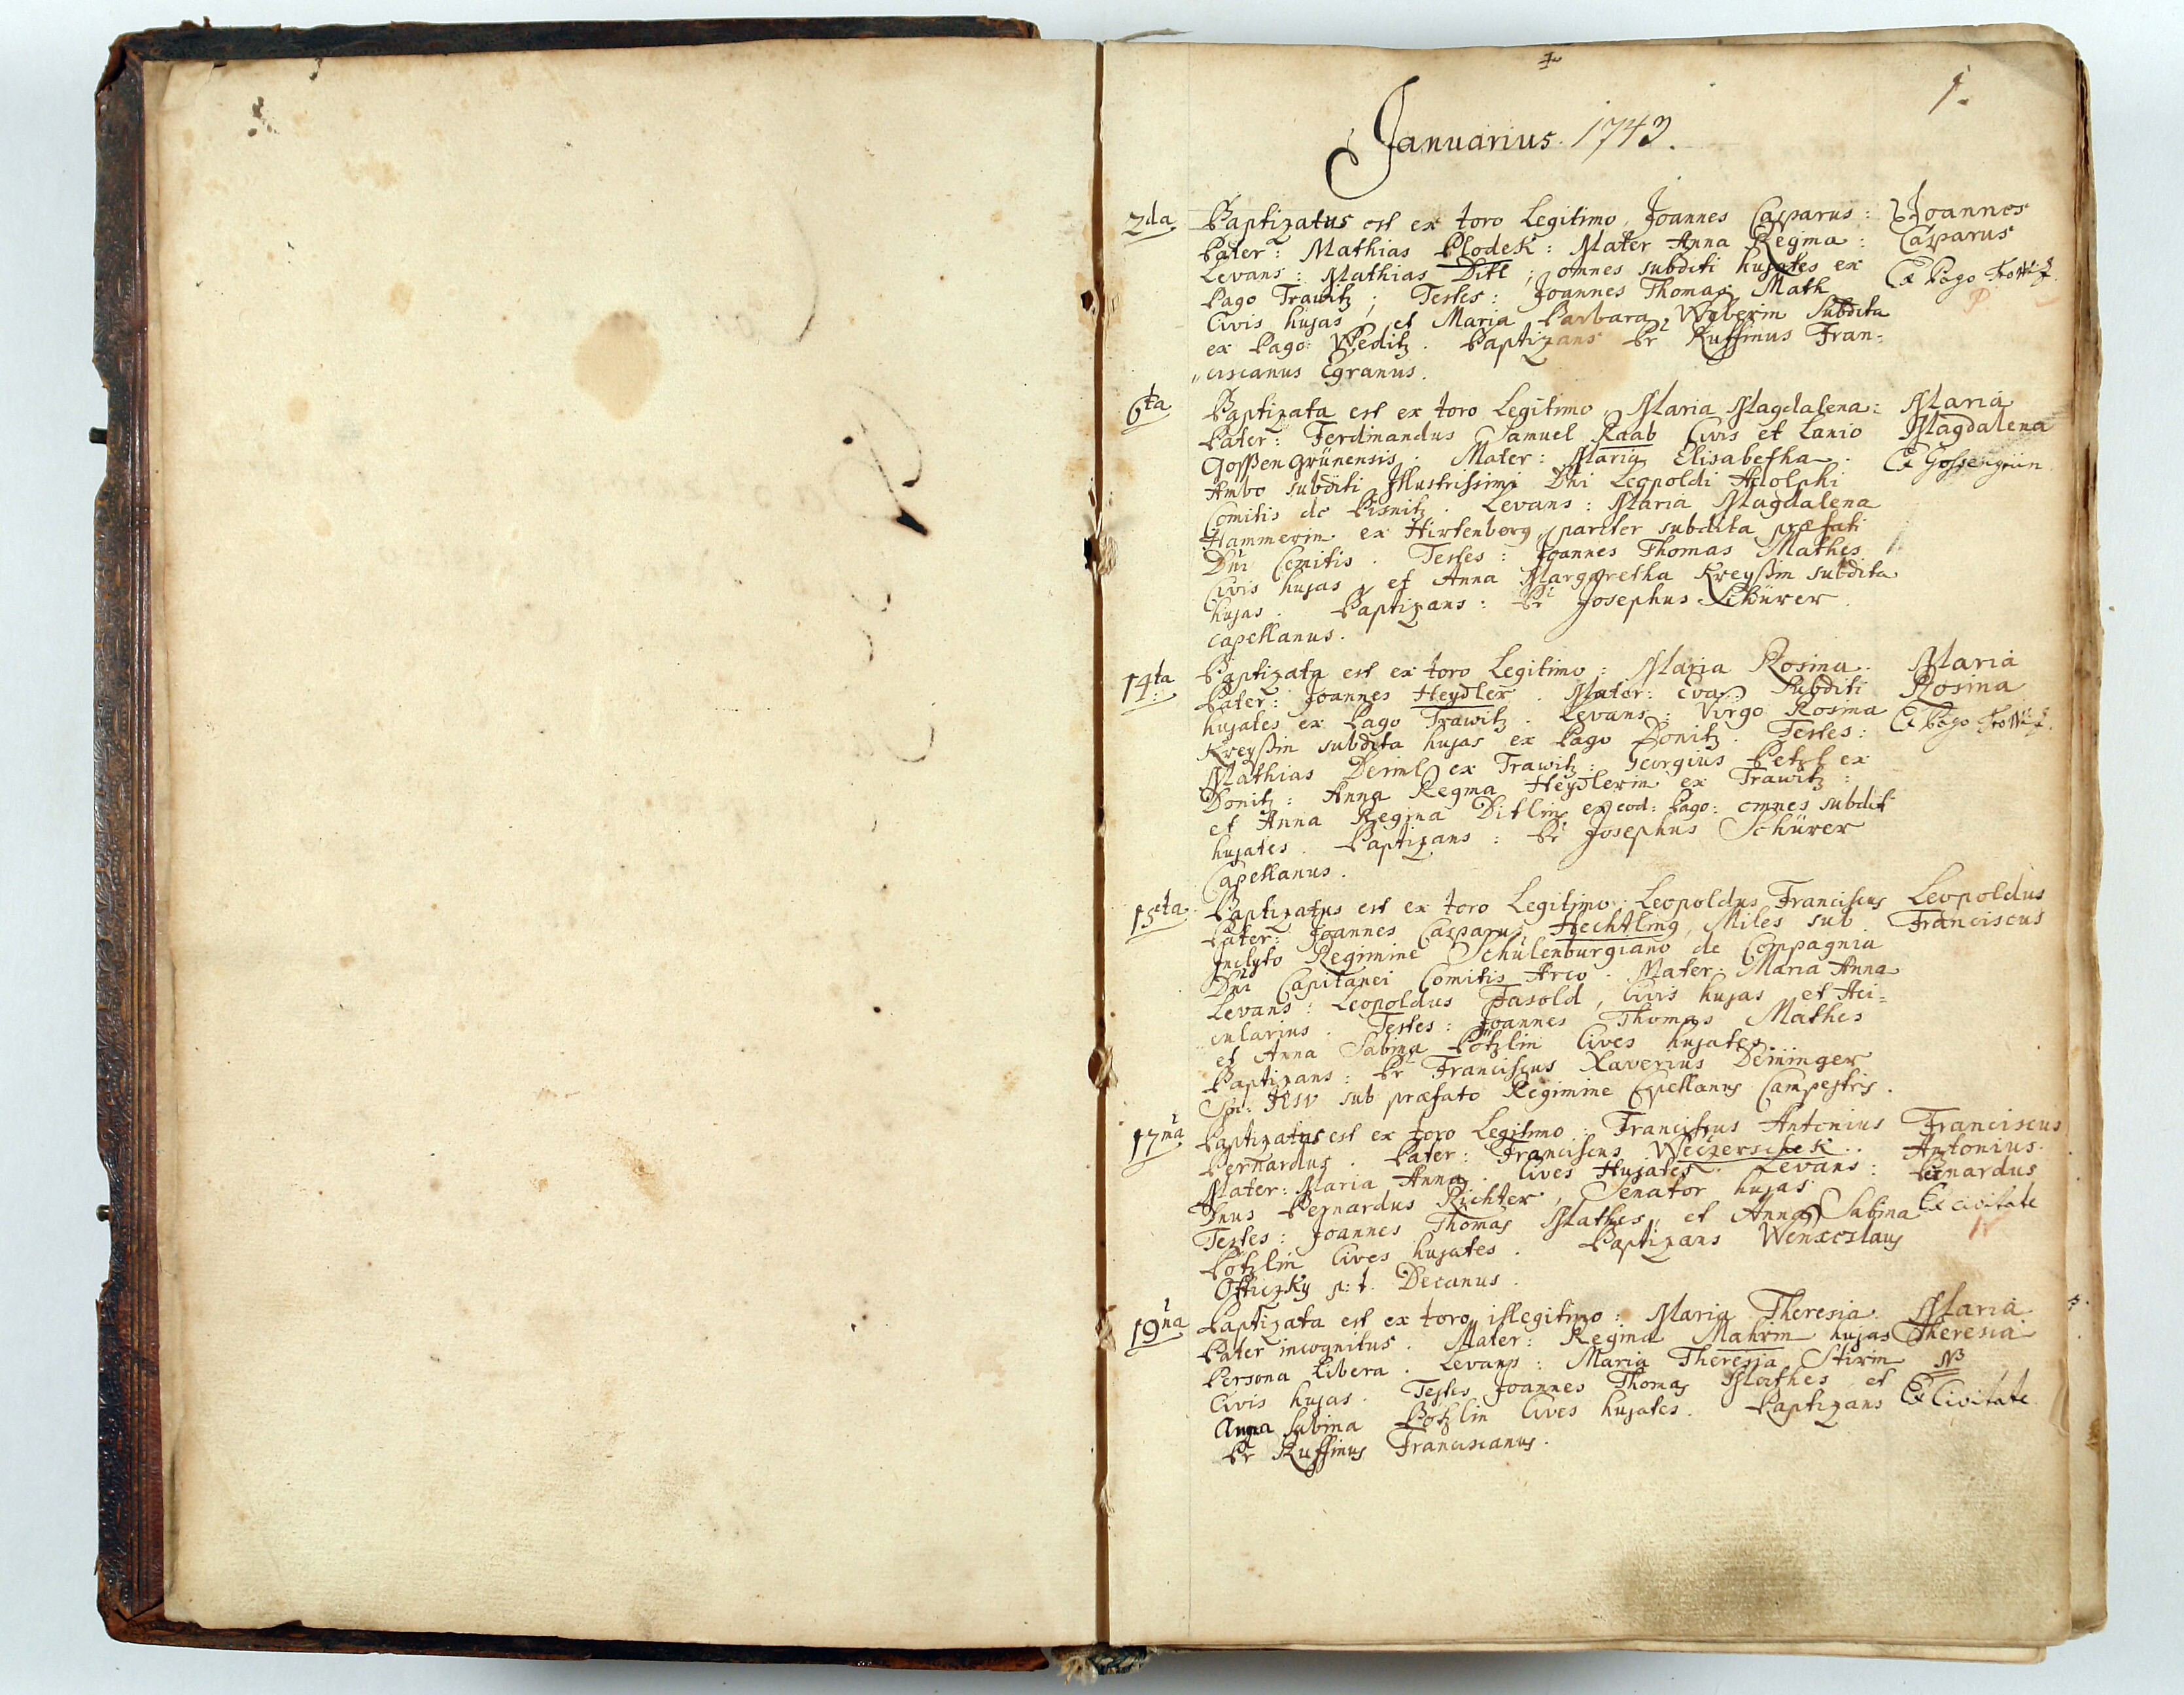 1.
Januarius. 1743.
2da Baptizatus est ex toro Legitimo, Joannes Casparus: Joannes
Pater: Mathias Plodek: Mater Anna Regina: Casparus
Levans: Mathias Ditl; omnes subditi hujates ex Ex Pago
Pago Trawitz; Testes: Joannes Thomas Math
Civis hujas, et Maria Barbara Weberin Subdita
ex Pago: Weditz. Baptizans Pr Ruffinus Fran-
„ciscanus Egranus.
6ta Baptizata est ex toro Legitimo, Maria Magdalena: Maria
Pater: Ferdinandus Samuel Raab Civis et Lanio Magdalena
Gossengrünensis. Mater: Maria Elisabetha. Ex Gossengrün
Ambo subditi Illustrissimi Dni Leopoldi Adolphi
Comitis de Pisnitz. Levans: Maria Magdalena
Hammerin ex Hirtenberg, pariter subdita præfati
Dni Comitis. Testes: Joannes Thomas Mathes
Civis hujas, et Anna Margaretha Kreyßin subdita
hujas. Baptizans: Pr Josephus Schürer
capellanus.
14ta Baptizata est ex toro Legitimo: Maria Rosina. Maria
Pater: Joannes Heydler. Mater: Eva. Subditi Rosina
hujates ex Pago Trawitz. Levans: Virgo Rosina Ex Pago
Kreyßin subdita hujas ex Pago Donitz. Testes:
Mathias Deiml ex Trawitz: Georgius Petzl ex
Donitz: Anna Regina Heydlerin ex Trawitz:
et Anna Regina Ditlin ex eod: Pago: omnes subditi
hujates. Baptizans: Pr Josephus Schürer
Capellanus.
15cta Baptizatus est ex toro Legitimo: Leopoldus Franciscus Leopoldus
Pater: Joannes Casparus Hechtling, Miles sub Franciscus
Inclyto Regimine Schülenburgiano de Compagnia
Dni Capitanei Comitis Arco. Mater: Maria Anna
Levans: Leopoldus Fasold, Civis hujas et Aci-
cularius. Testes: Joannes Thomas Mathes
et Anna Sabina Pötzlin Cives hujates.
Baptizans: Pr Franciscus Xaverius Deninger
Soc: JESU sub præfato Regimine Capellanus Campestris.
17ma Baptizatus est ex toro Legitimo: Franciscus Antonius Franciscus
Bernardus. Pater: Franciscus Weczerschek. Antonius
Mater: Maria Anna. Cives Hujates. Levans: Bernardus
Dnus Bernardus Richter, Senator hujas. Ex civitate
Testes: Joannes Thomas Mathes, et Anna Sabina
Pötzlin Cives hujates. Baptizans Wenceslaus
Otticzky p:t. Decanus.
19na Baptizata est ex toro illegitimo: Maria Theresia. Maria
Pater incognitus. Mater: Regina Mahrin hujas Theresia
Persona Libera. Levans: Maria Theresia Stirin NB
Civis hujas. Testes Joannes Thomas Mathes et Ex Civitate
Anna Sabina Pötzlin Cives hujates. Baptizans
Pr Ruffinus Franciscanus.